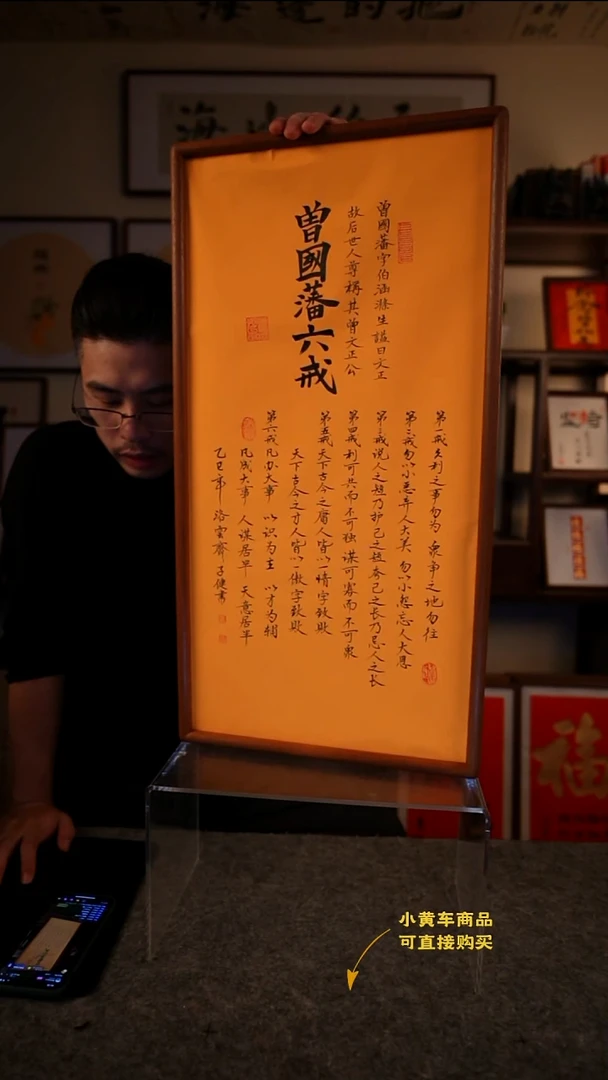 曾國藩字伯涵滌生諡曰文正
故后世人尊稱其曾文正公
曾國藩六戒
第一戒久利之事勿为 衆争之地勿往
第二戒勿以小恶弃人大美 勿以小怨忘人大恩
第三戒说人之短乃护己之短夸己之长乃忌人之长
第四戒利可共而不可独 谋可寡而不可衆
第五戒天下古今之庸人皆以一惰字致败
天下古今之才人皆以一傲字致败
第六戒凡办大事 以识为主 以才为辅
凡成大事 人谋居半 天意居半
乙巳年 洛雲齋 子健書
福
小黄车商品
可直接购买